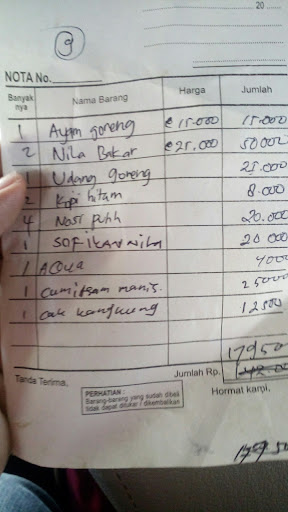 9
20
NOTA No.
Banyak nya Nama Barang Harga Jumlah
1 Ayam goreng @ 15.000 15.000
2 Nila Bakar @ 25.000 50000
1 Udang Goreng 25.000
2 Kopi hitam 8.000
4 Nasi putih 20.000
1 20.000
1 ACQUA 4000
1 Cumi asam manis. 25000
1 Cak kangkung 12500
17950
Jumlah Rp.
Tanda Terima,
PERHATIAN :
Barang-barang yang sudah dibeli
tidak dapat ditukar / dikembalikan
Hormat kami,